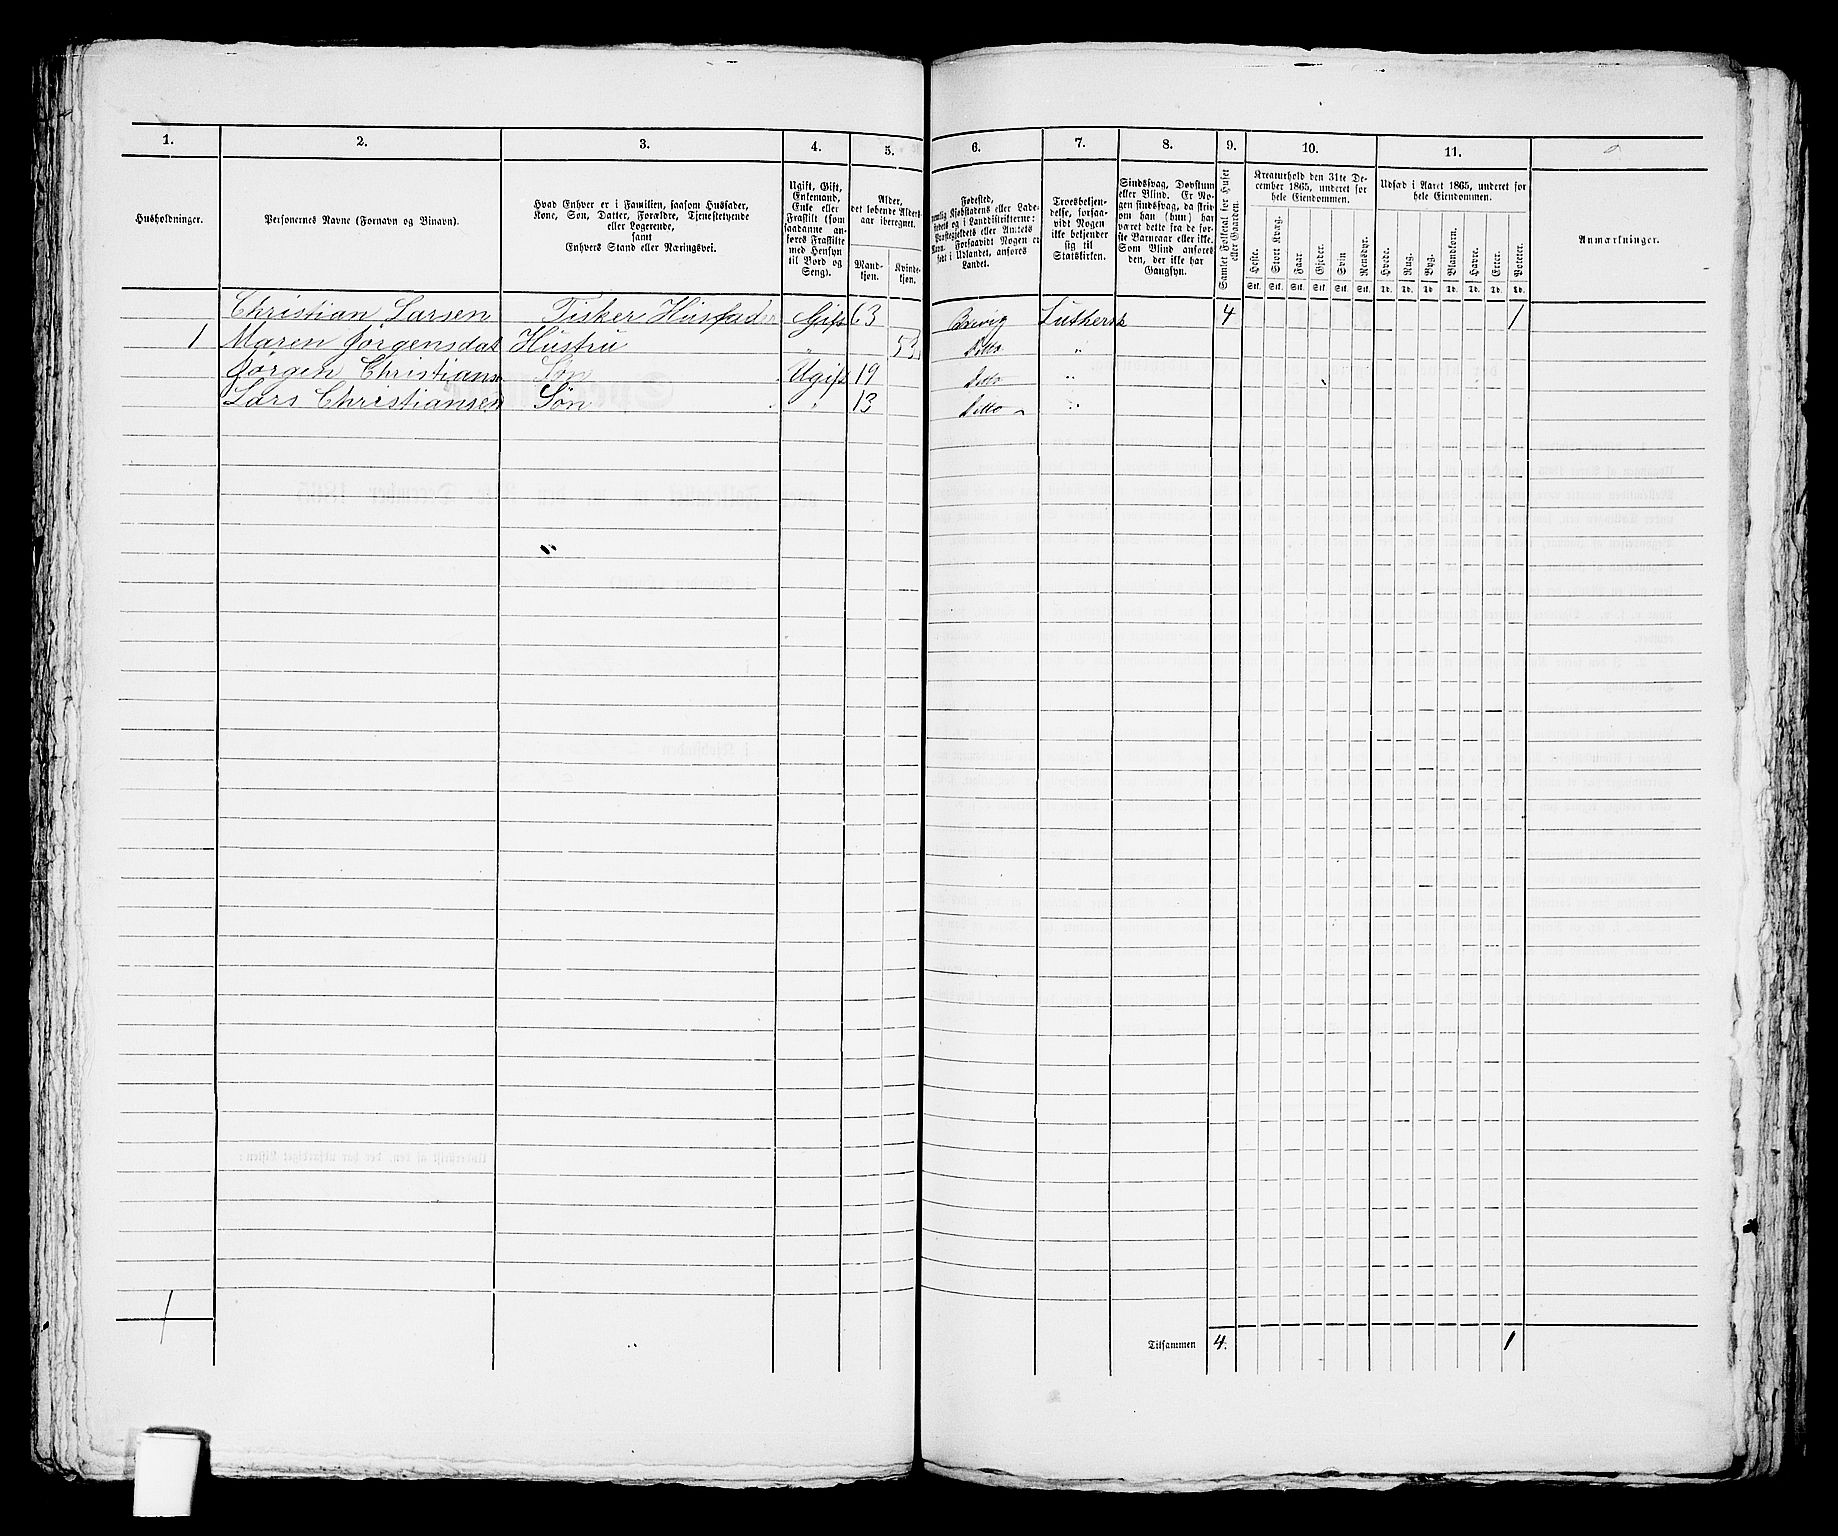 1. 2. 3. 4. 5. 6. 7. 8. 9. 10. 11.
Husholdninger.
Personernes Navne (Fornavn og Binavn).
Hvad Enhver er i Familien, saasom Husfader,
Kone, Søn, Datter, Forældre, Tjenestetyende
eller Logerende,
samt
Enhvers Stand eller Næringsvei.
Ugift, Gift,
Enkemand,
Enke eller
Fraskilt (som
saadanne an-
føres Fraskilte
med Hensyn
til Bord og
Seng).
Alder,
det løbende Alders-
aar iberegnet.
Mand-
kjøn.
Kvinde-
kjøn.
Fødested,
nemlig Kjøbstadens eller Lade-
stedets og i Landdistrikterne:
Præstegjeldets eller Amtets
Navn. Forsaavidt Nogen er
født i Udlandet, anføres
Landet.
Troesbekjen-
delse, forsaa-
vidt Nogen
ikke bekjender
sig til
Statskirken.
Sindssvag, Døvstum
eller Blind. Er No-
gen sindssvag, da skriv
om han (hun) har
været dette fra de før-
ste Barneaar eller ikke.
Som Blind anføres
den, der ikke har
Gangsyn.
Samlet Folketal for Huset
eller Gaarden.
Kreaturhold den 31te De-
cember 1865, underet for
hele Eiendommen.
Heste. Stort Kvæg. Faar. Gjeder. Svin. Rensdyr.
Stk. Stk. Stk. Stk. Stk. Stk.
Udsæd i Aaret 1865, underet for
hele Eiendommen.
Hvede. Rug. Byg. Blandkorn. Havre. Erter. Poteter.
Td. Td. Td. Td. Td. Td. Td.
Anmærkninger.
Christian Larsen Fisker Husfader Gift 63 Brevig Luthersk 4 1
1 Maren Jørgensdat Hustru " 53 Ditto "
Jørgen Christianse Søn Ugift 19 Ditto "
Lars Christiansen Søn " 13 Ditto "
1 Tilsammen 4. 1